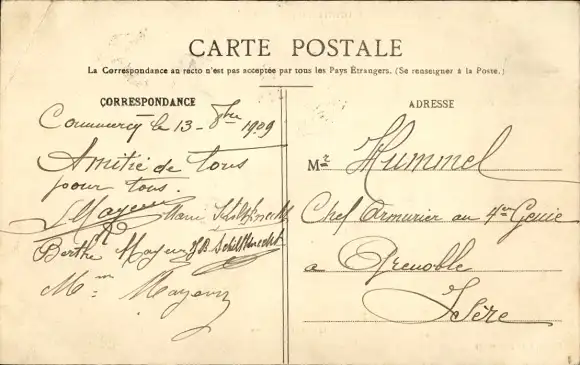 CARTE POSTALE
La Correspondance au recto n'est pas acceptée par tous les Pays Étrangers. (Se renseigner à la Poste.)
CORRESPONDANCE
Commercy le 13 - 8bre 1909
Amitié de tous
pour tous.
L Mayeur Marie Schilknecht
Berthe Mayeur JB Schilknecht
Mme Mayeur
ADRESSE
Mr Hummel
Chef Armurier au 4me Génie
a Grenoble
Isère